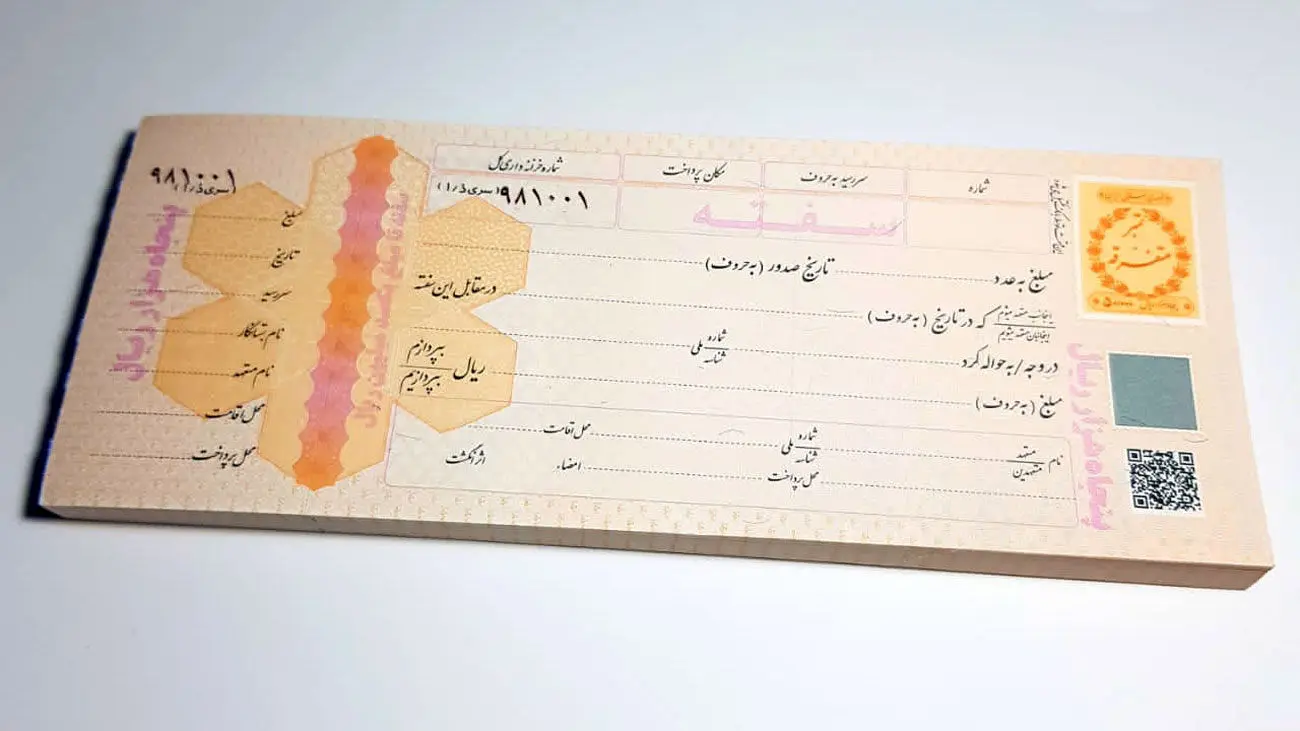 شماره
سررسید به حروف
مکان پرداخت
شماره خزانه داری کل
۹۸۱۰۰۱ (سری ذ/۱)
سفته
مبلغ به عدد
تاریخ صدور (به حروف)
در مقابل این سفته
اینجانب متعهد میشوم
اینجانبان متعهد میشویم
که در تاریخ (به حروف)
در وجه / به حواله کرد
شماره
شناسه
ملی
ریال
بپردازم
بپردازیم
مبلغ (به حروف)
نام
متعهد
متعهدین
شماره
شناسه
ملی
محل اقامت
محل پرداخت
امضاء
اثر انگشت
تمبر
متفرقه
پنجاه هزار ریال
سفته تا مبلغ یکصد میلیون ریال
۹۸۱۰۰۱
(سری ذ/۱)
مبلغ
تاریخ
سررسید
نام بستانکار
نام متعهد
محل اقامت
محل پرداخت
پنجاه هزار ریال